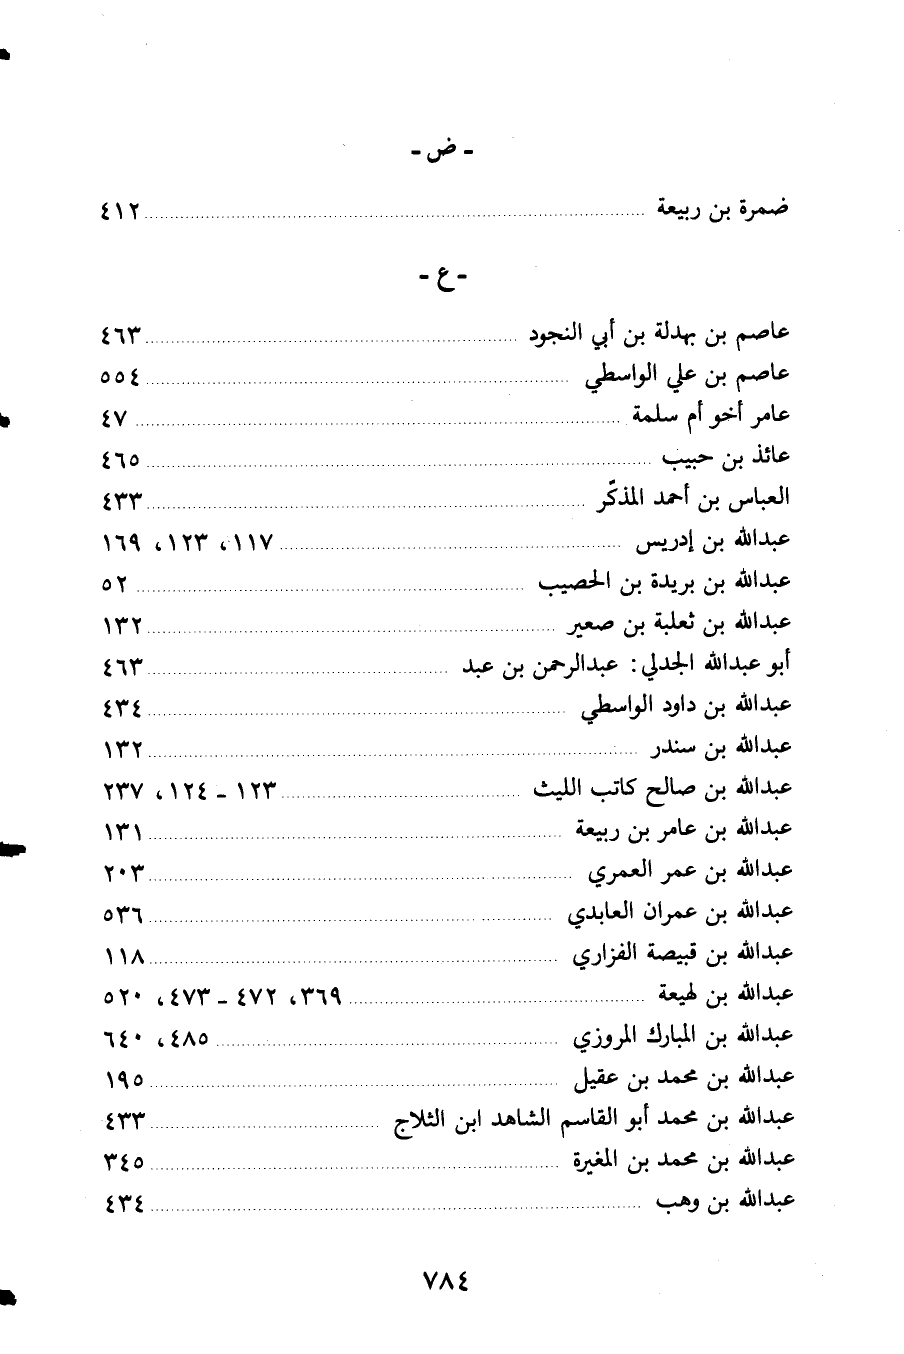 - ض -
ضمرة بن ربيعة ........ ٤١٢
- ع -
عاصم بن بهدلة بن أبي النجود ........ ٤٦٣
عاصم بن علي الواسطي ........ ٥٥٤
عامر أخو أم سلمة ........ ٤٧
عائذ بن حبيب ........ ٤٦٥
العباس بن أحمد المذكّر ........ ٤٣٣
عبدالله بن إدريس ........ ١١٧، ١٢٣، ١٦٩
عبدالله بن بريدة بن الحصيب ........ ٥٢
عبدالله بن ثعلبة بن صعير ........ ١٣٢
أبو عبدالله الجدلي: عبدالرحمن بن عبد ........ ٤٦٣
عبدالله بن داود الواسطي ........ ٤٣٤
عبدالله بن سندر ........ ١٣٢
عبدالله بن صالح كاتب الليث ........ ١٢٣ - ١٢٤، ٢٣٧
عبدالله بن عامر بن ربيعة ........ ١٣١
عبدالله بن عمر العمري ........ ٢٠٣
عبدالله بن عمران العابدي ........ ٥٣٦
عبدالله بن قبيصة الفزاري ........ ١١٨
عبدالله بن لهيعة ........ ٣٦٩، ٤٧٢ - ٤٧٣، ٥٢٠
عبدالله بن المبارك المروزي ........ ٤٨٥، ٦٤٠
عبدالله بن محمد بن عقيل ........ ١٩٥
عبدالله بن محمد أبو القاسم الشاهد ابن الثلاج ........ ٤٣٣
عبدالله بن محمد بن المغيرة ........ ٣٤٥
عبدالله بن وهب ........ ٤٣٤
٧٨٤